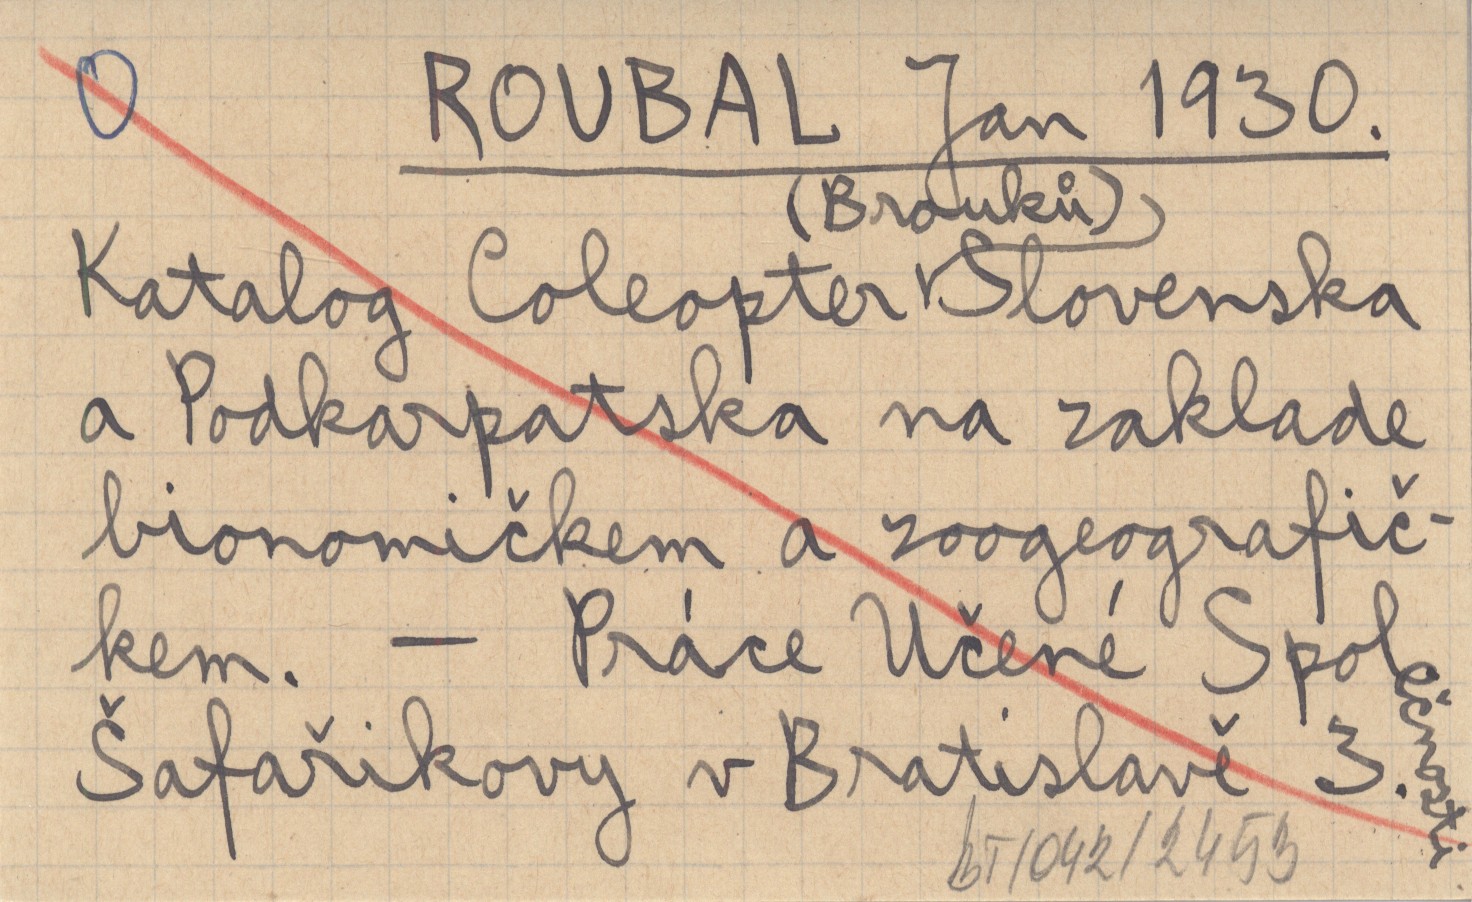 O ROUBAL Jan 1930.
(Brouků)
Katalog Coleopter Slovenska
a Podkarpatska na zaklade
bionomičkem a zoogeografič-
kem. — Práce Učené Společnosti
Šafařikovy v Bratislavě 3.
/042/2453